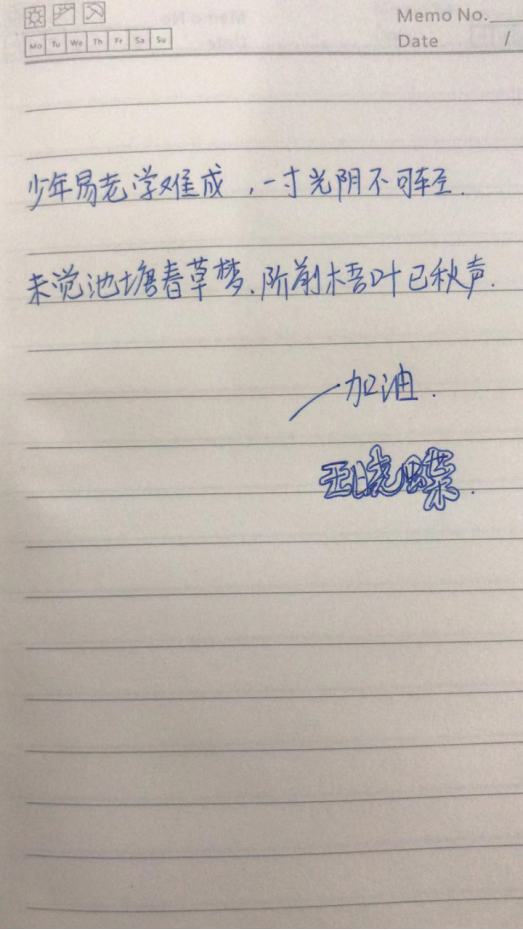 Memo No.
Mo Tu We Th Fr Sa Su
Date /
少年易老学难成，一寸光阴不可轻.
未觉池塘春草梦.阶前梧叶已秋声.
一加油.
王晓蝶.